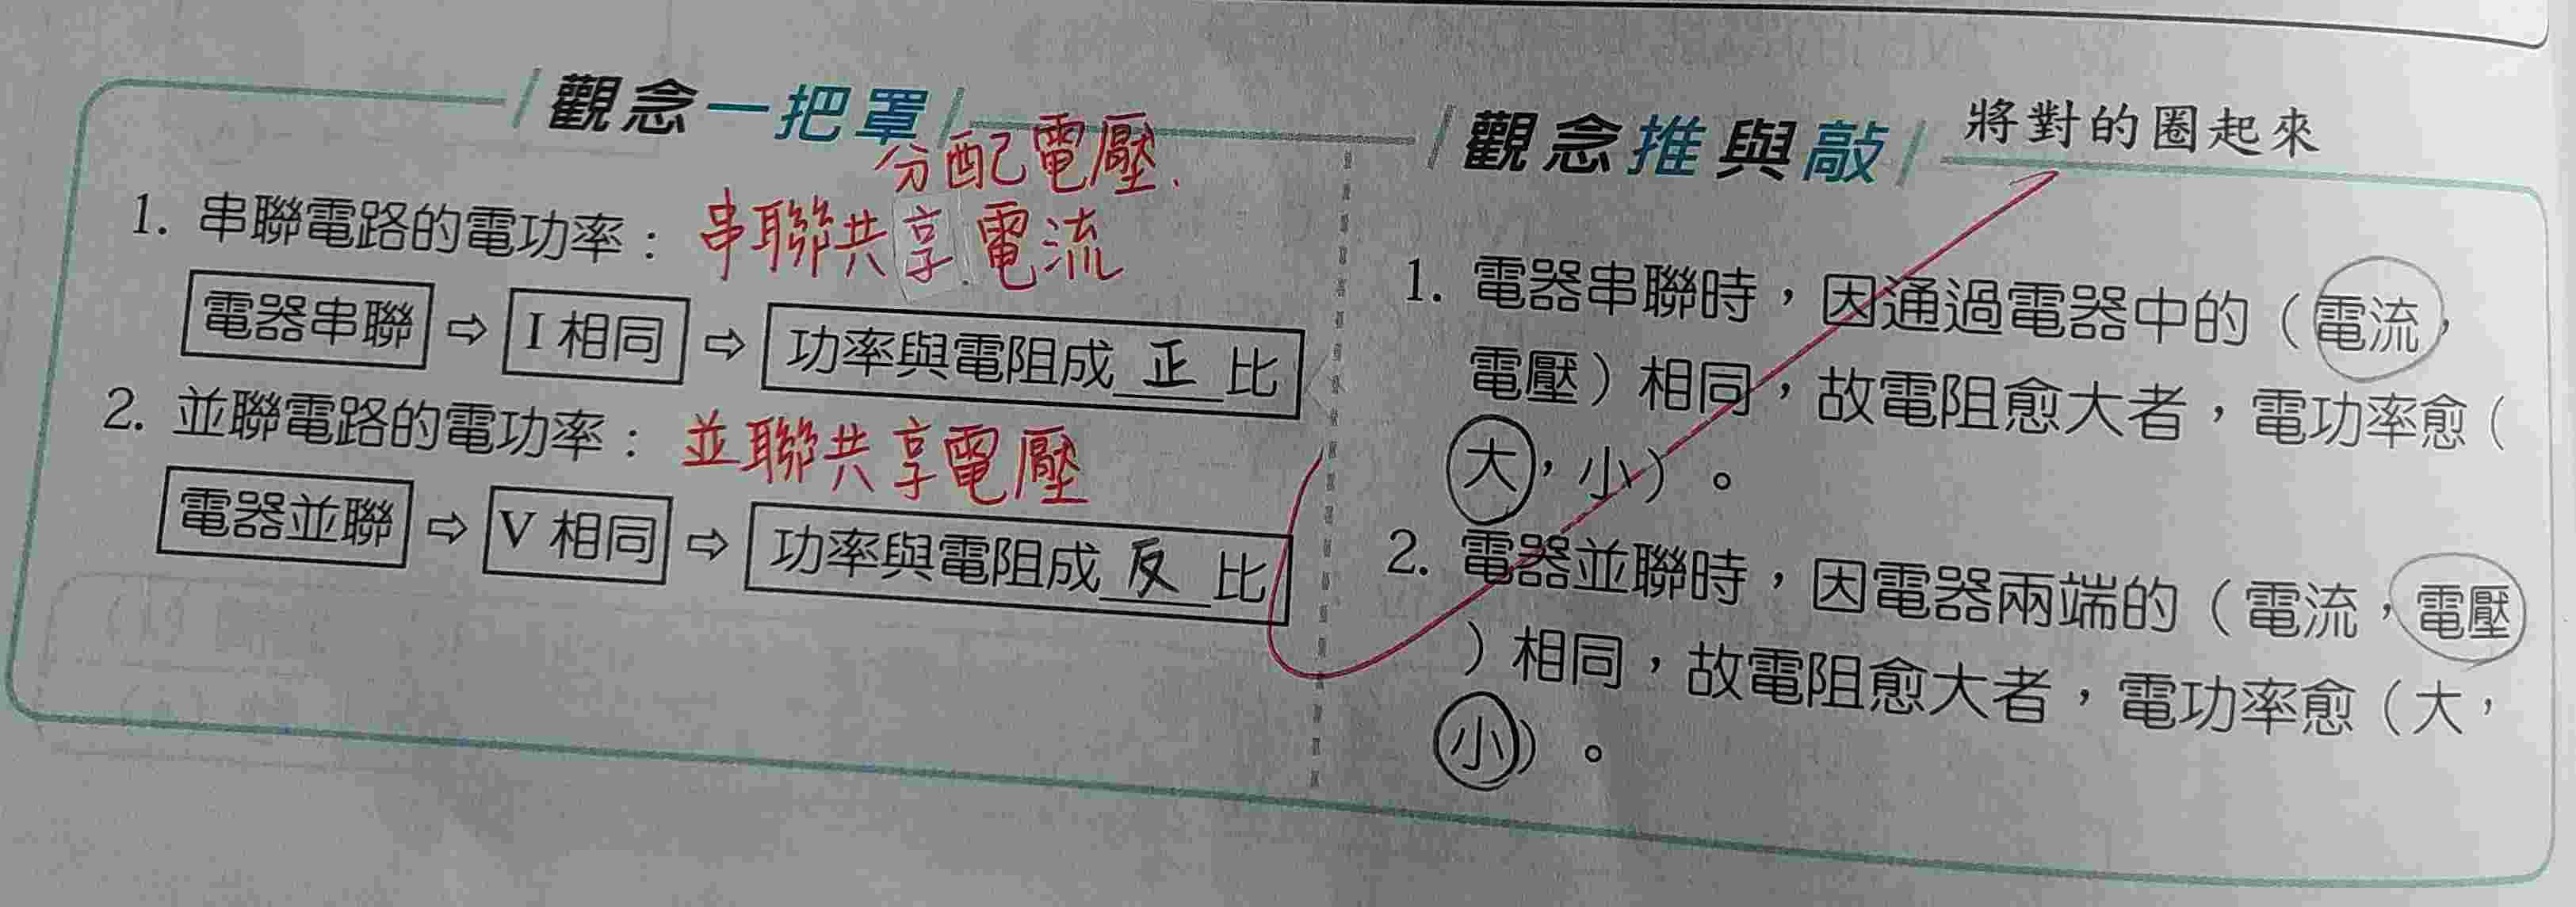 觀念一把罩
分配電壓.
1. 串聯電路的電功率：串聯共享電流
電器串聯 ⇨ I 相同 ⇨ 功率與電阻成 正 比
2. 並聯電路的電功率：並聯共享電壓
電器並聯 ⇨ V 相同 ⇨ 功率與電阻成 反 比
觀念推與敲 將對的圈起來
1. 電器串聯時，因通過電器中的（電流，
電壓）相同，故電阻愈大者，電功率愈（
大，小）。
2. 電器並聯時，因電器兩端的（電流，電壓
）相同，故電阻愈大者，電功率愈（大，
小）。